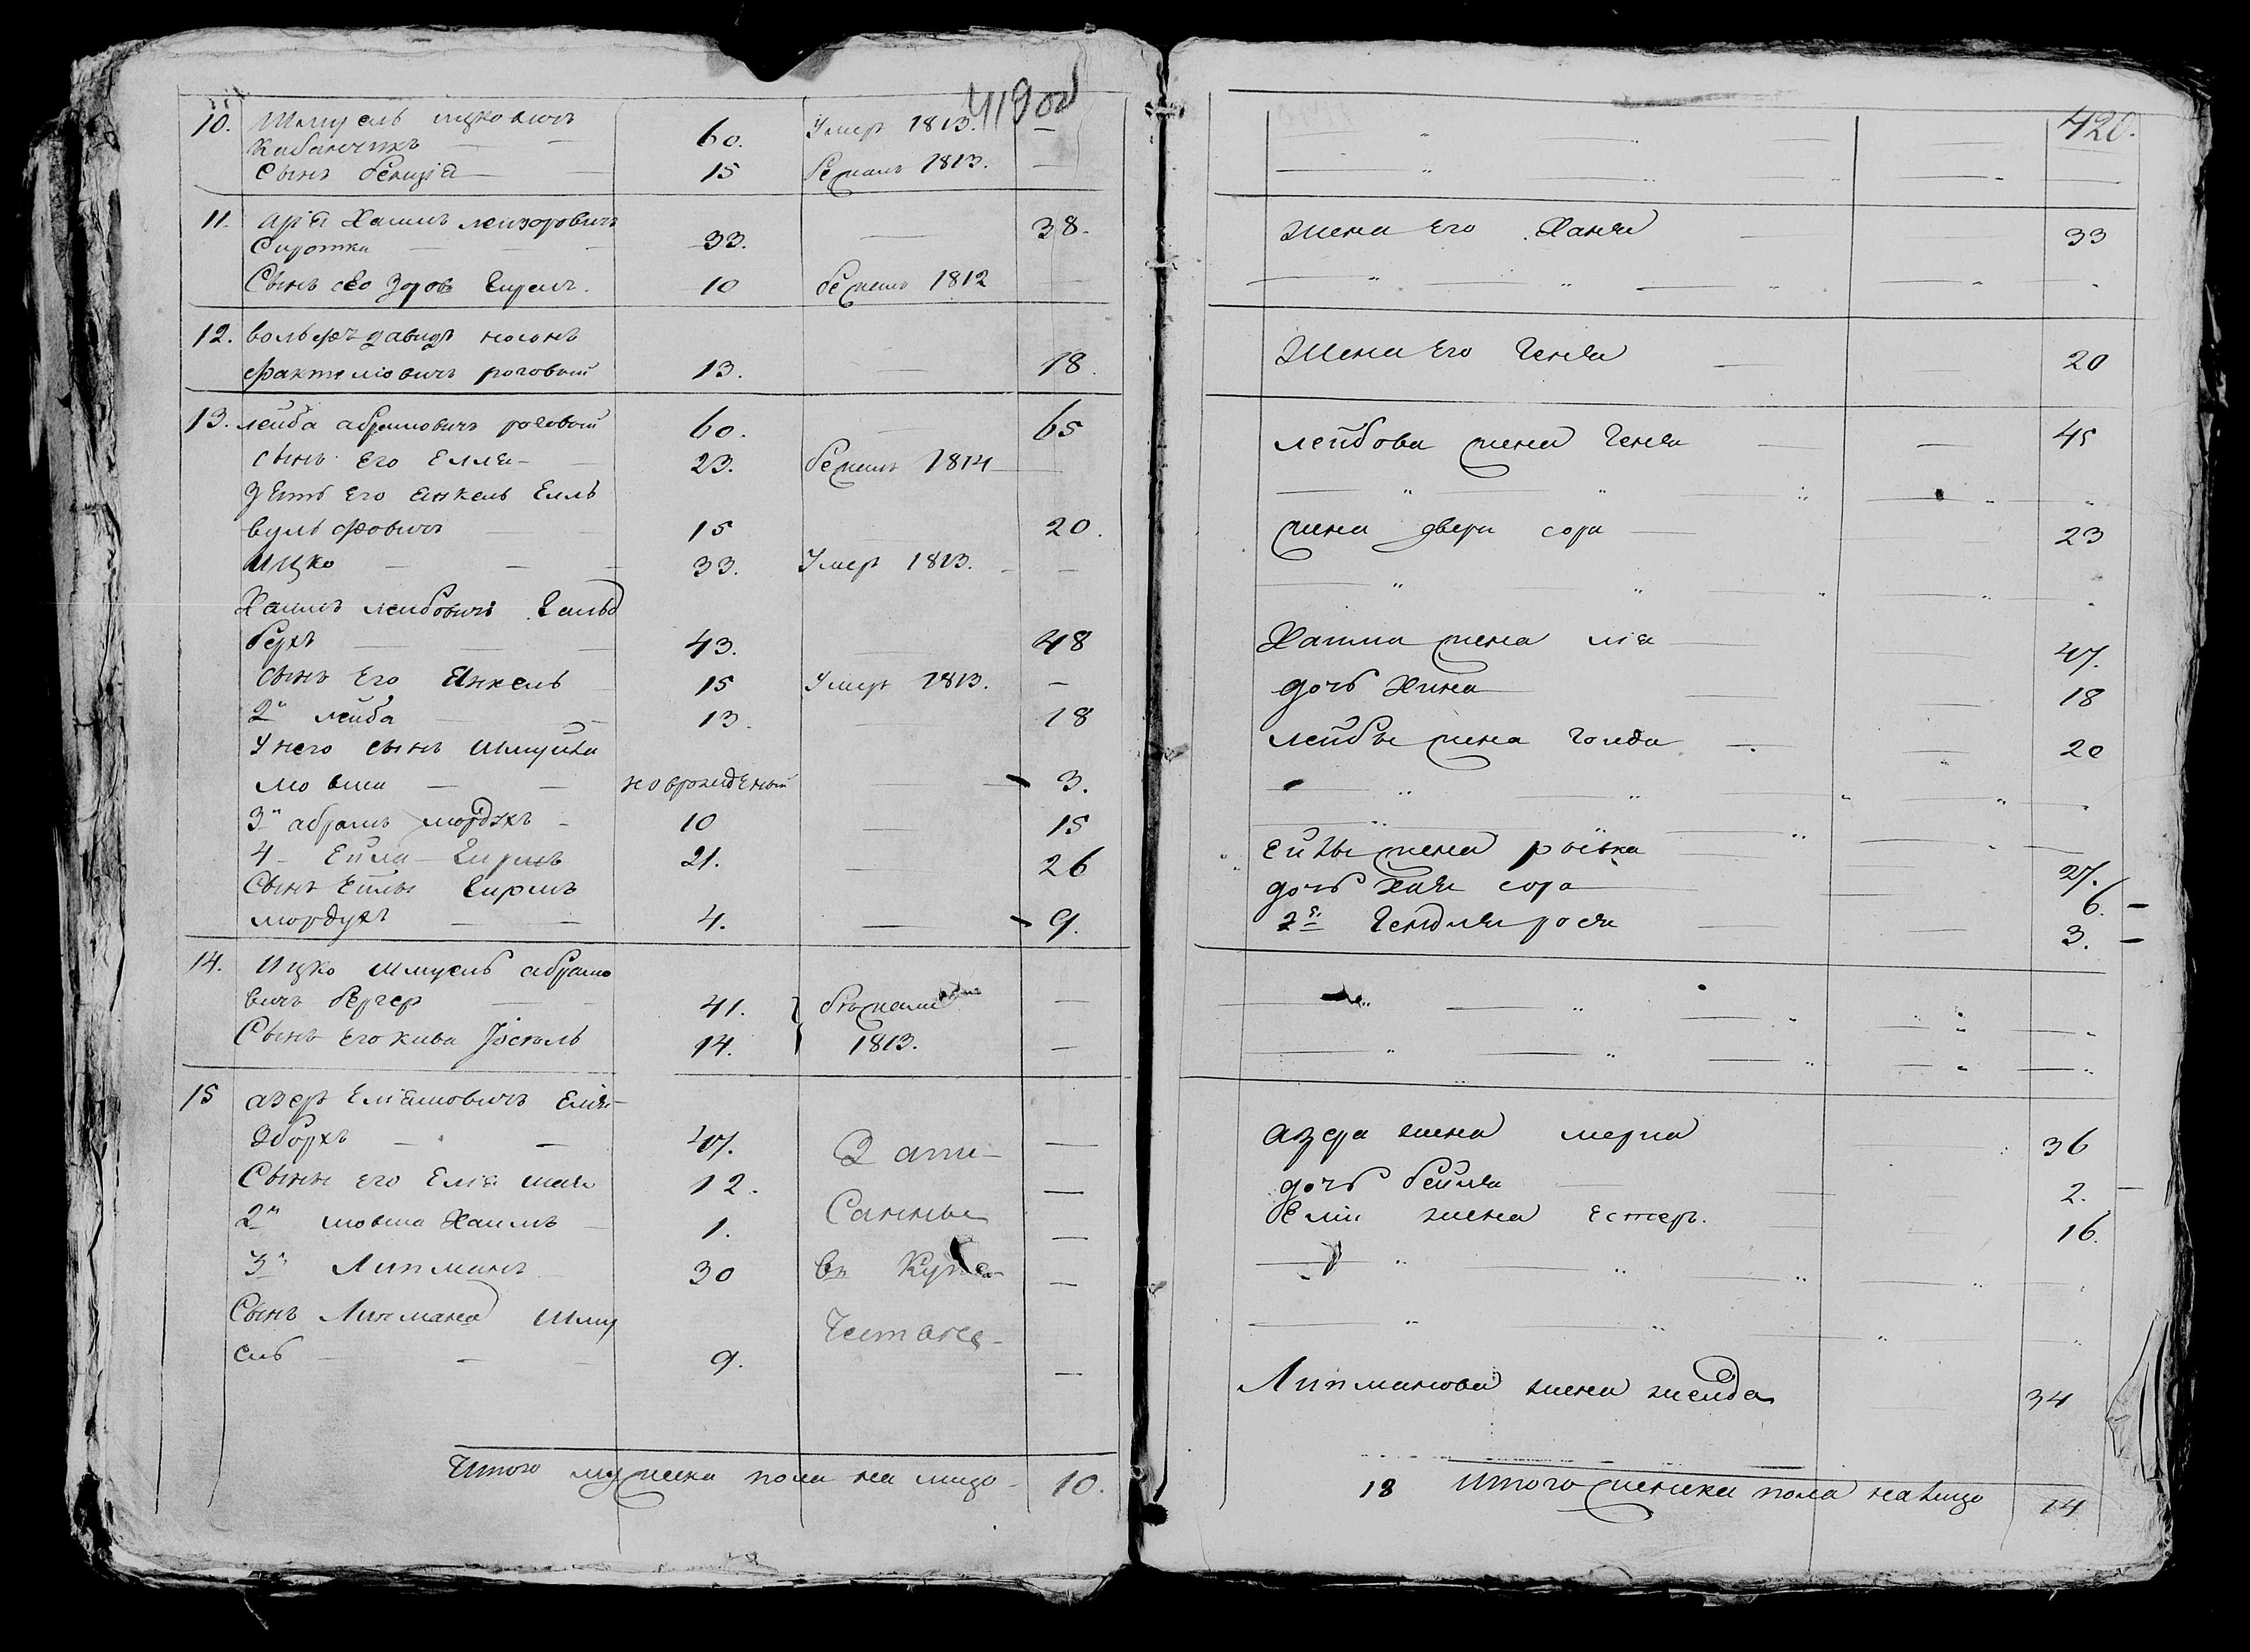 419 об
10. Шмуель ицковичъ
Кабанчикъ — — 60. Умеръ 1813. —
Сынъ бенция — — 15 бежалъ 1813. —
11. Ария Хаимъ лейзоровичъ
Сиротка — — 33. — 38.
Сынъ его Гиршъ. 10 бежалъ 1812 —
12. вольфъ давидъ носонъ
роговый 13. — 18.
13. лейба абрамовичъ роговый 60. — 65
сынъ его Елля — — 23. бежалъ 1814 —
Зять его Янкель Елль
вульфовичъ — — 15 20.
Ицко — — — 33. Умеръ 1813. — —
Хаимъ лейбовичъ Гольд
берхъ — — — 43. — 48
сынъ Его Янкель — 15 Умеръ 1813. —
2й лейба — — 13. — 18
У него сынъ Шмуйла
мовша — — новорожденный — 3.
3й абрамъ мордухъ — 10 — 15
4 — Ейла Гиршъ 21. — 26
Сынъ Ейлы Гиршъ
мордухъ — — 4. — 9.
14. Ицко Шмуель абрамо
вичъ бергер — — 41. } бежали —
Сынъ его кива Иосель 14. 1813. —
15 азеръ
— — 47. Запи- —
Сынъ его Елия 12. Санные —
2й мовша Хаимъ — 1. —
3й Липманъ 30 въ Купе- —
Сынъ Липмана Шму чество
ель — — — 9. —
Итого мужеска пола на лицо — 10.
420.
жена Его Ханя — — 33
Жена Его Геня — — 20
лейбова жена Геня — — 45
жена двери сора — — 23
Хаима жена лия — — 47.
дочь Хина — — 18
лейбы жена голда — — 20
Ейлы жена ривка — — 27.
дочь Хая сора — — 6. —
2я Гендля рося — — 3. —
азера жена мерка — 36
дочь бейля — — 2. —
Елии жена Естеръ. — — 16.
Липманова жена — 34
18 Итого женска пола на лицо 14